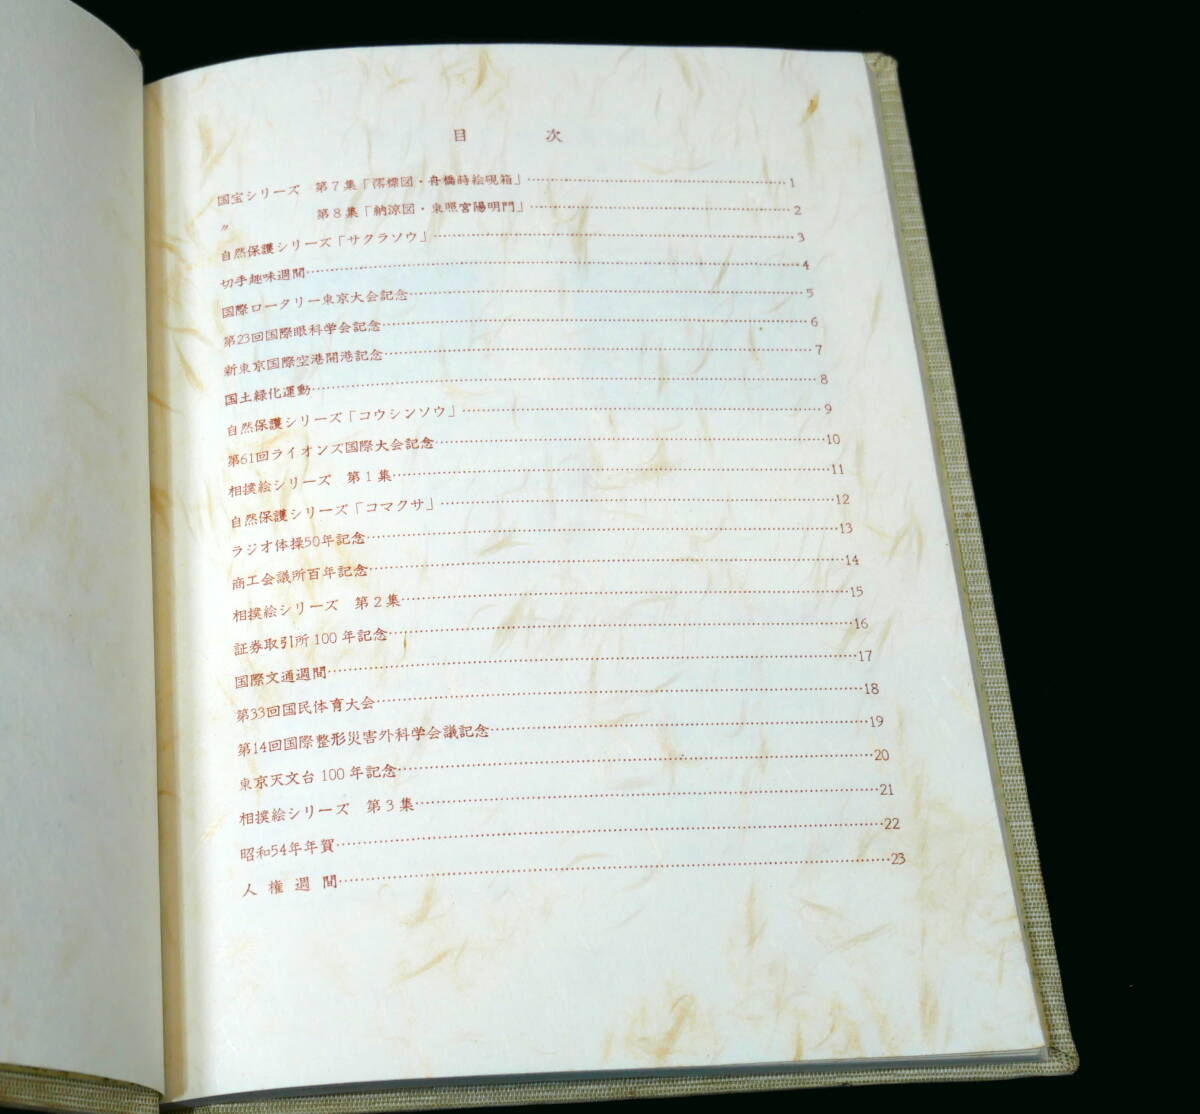 目次
国宝シリーズ 第7集「澪標図・舟橋蒔絵硯箱」……1
〃 第8集「納涼図・東照宮陽明門」……2
自然保護シリーズ「サクラソウ」……3
切手趣味週間……4
国際ロータリー東京大会記念……5
第23回国際眼科学会記念……6
新東京国際空港開港記念……7
国土緑化運動……8
自然保護シリーズ「コウシンソウ」……9
第61回ライオンズ国際大会記念……10
相撲絵シリーズ 第1集……11
自然保護シリーズ「コマクサ」……12
ラジオ体操50年記念……13
商工会議所百年記念……14
相撲絵シリーズ 第2集……15
証券取引所100年記念……16
国際文通週間……17
第33回国民体育大会……18
第14回国際整形災害外科学会議記念……19
東京天文台100年記念……20
相撲絵シリーズ 第3集……21
昭和54年年賀……22
人権週間……23